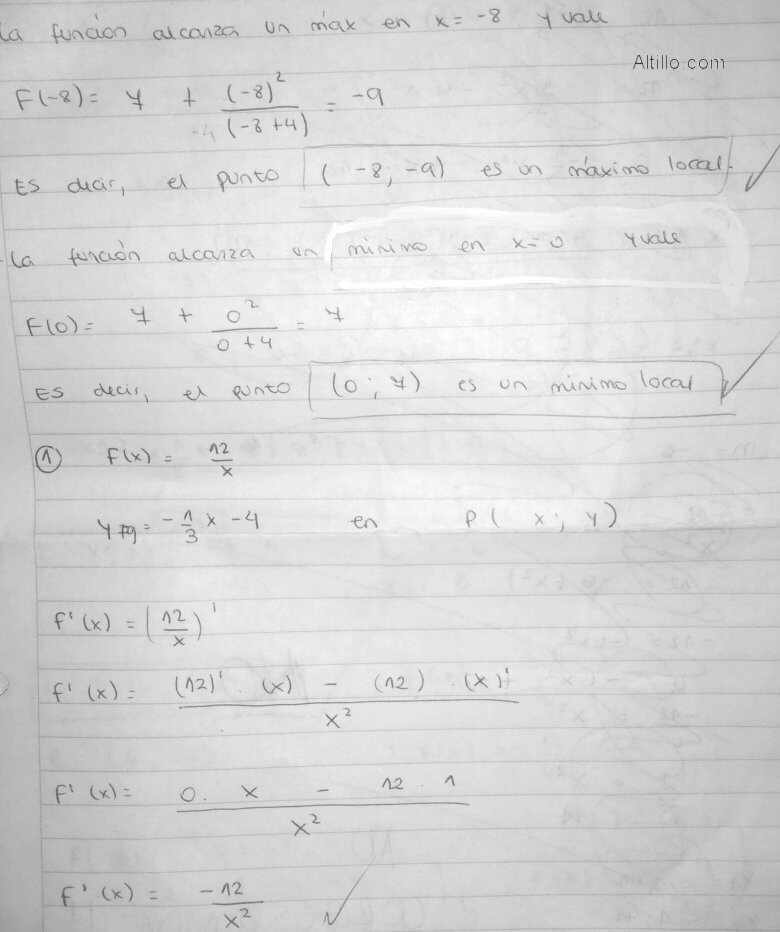 La función alcanza un máx en x = -8 y vale
Altillo.com
F(-8) = 7 + (-8)² / (-8+4) = -9
-4
Es decir, el punto (-8; -9) es un máximo local.
La función alcanza un mínimo en x=0 y vale
F(0) = 7 + 0² / 0+4 = 7
Es decir, el punto (0; 7) es un mínimo local
① F(x) = 12/x
y tg = -1/3 x - 4 en P( x; y)
F'(x) = (12/x)'
F'(x) = (12)' . (x) - (12) . (x)' / x²
F'(x) = 0. x - 12 . 1 / x²
F'(x) = -12 / x²